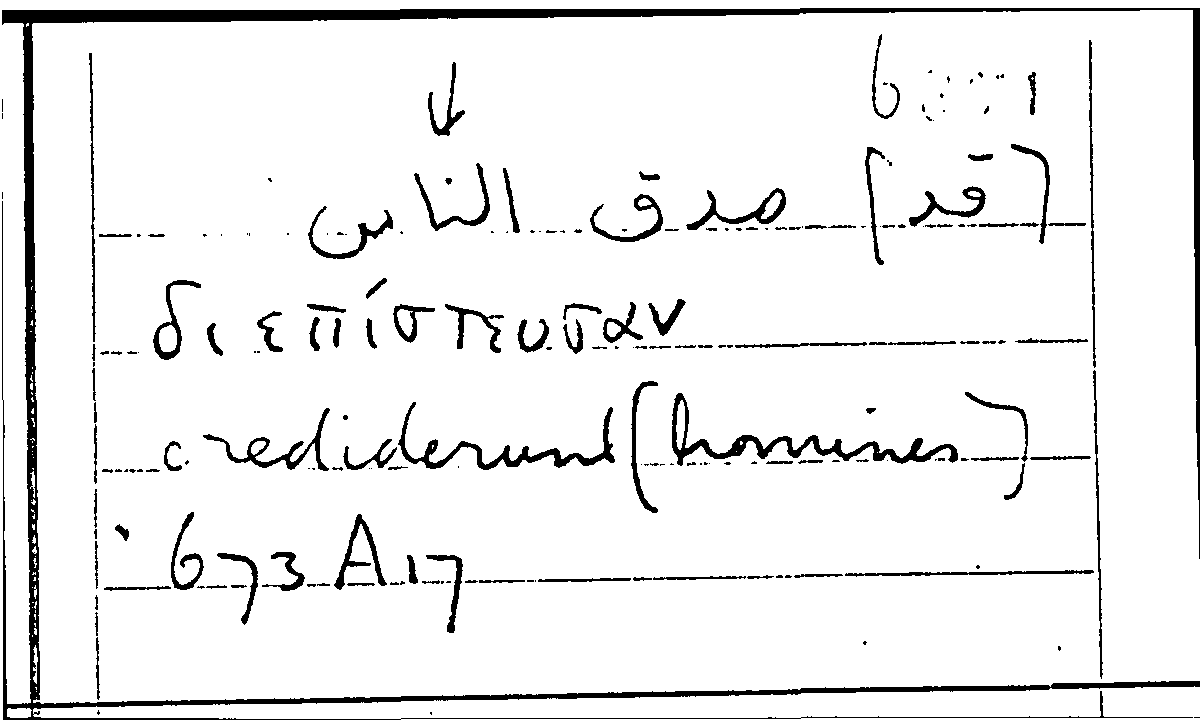 (قد) صدق الناس
διεπίστευσαν
crediderunt (homines)
673 A 17